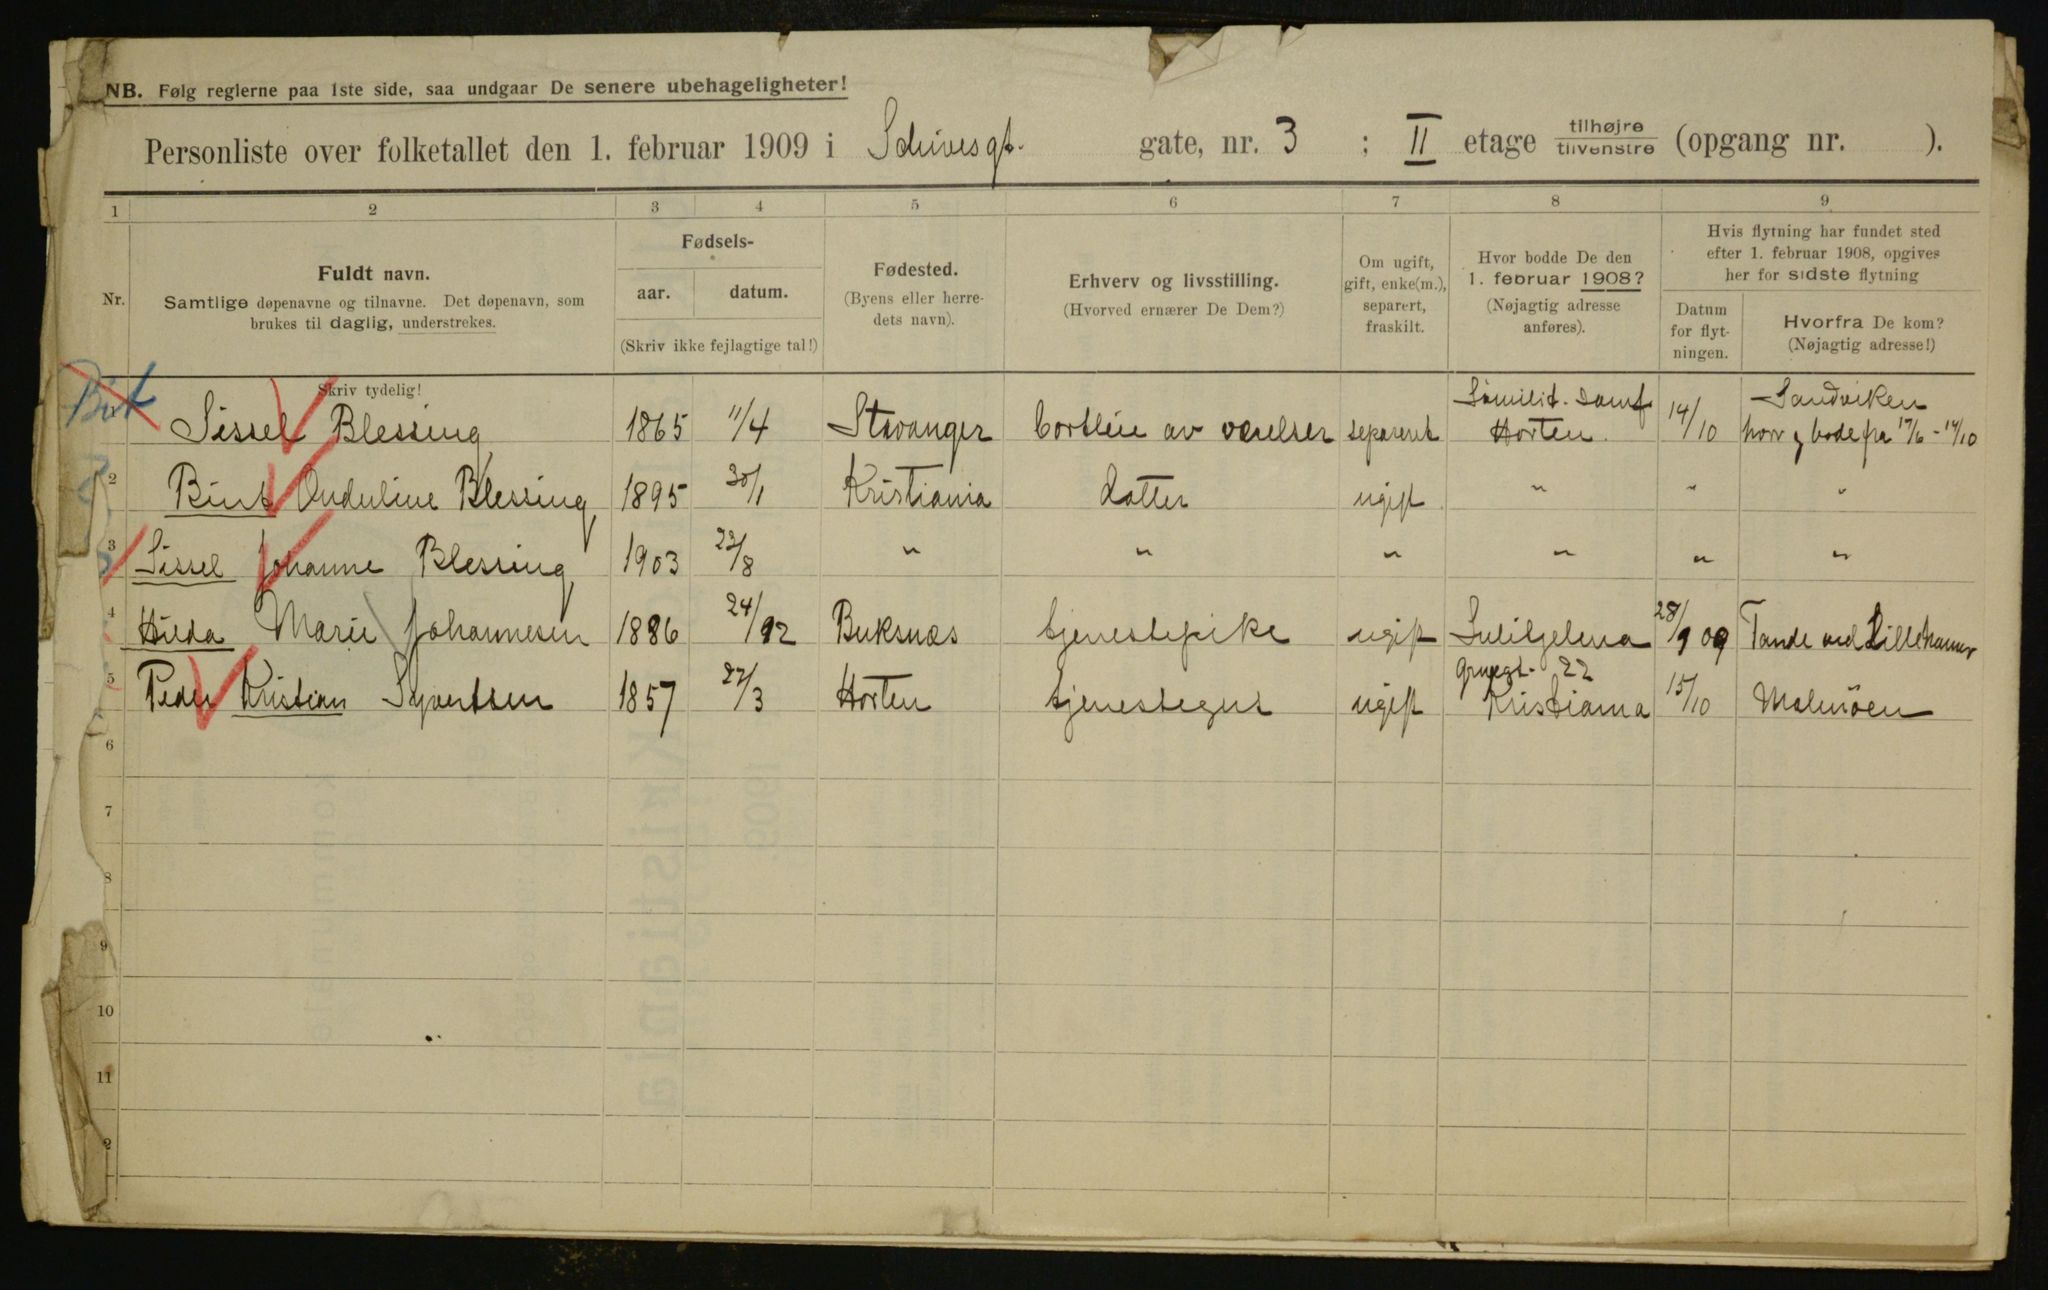 NB. Følg reglerne paa 1ste side, saa undgaar De senere ubehageligheter!
Personliste over folketallet den 1. februar 1909 i Schivesgt. gate, nr. 3 ; II etage tilhøjre / tilvenstre (opgang nr. ).
1 2 3 4 5 6 7 8 9
Nr.
Fuldt navn.
Samtlige døpenavne og tilnavne. Det døpenavn, som
brukes til daglig, understrekes.
Skriv tydelig!
Fødsels-
aar. datum.
(Skriv ikke fejlagtige tal!)
Fødested.
(Byens eller herre-
dets navn).
Erhverv og livsstilling.
(Hvorved ernærer De Dem?)
Om ugift,
gift, enke(m.),
separert,
fraskilt.
Hvor bodde De den
1. februar 1908?
(Nøjagtig adresse
anføres).
Hvis flytning har fundet sted
efter 1. februar 1908, opgives
her for sidste flytning
Datum
for flyt-
ningen.
Hvorfra De kom?
(Nøjagtig adresse!)
Sissel Blessing 1865 11/4 Stavanger bortleie av værelser separert Horten. 14/10 Sandviken
hvor jeg bode fra 17/6 - 14/10
2 Birit Onduline Blessing 1895 30/1 Kristiania datter ugift " " "
3 Sissel Johanne Blessing 1903 23/8 " " " " " "
4 Hilda Marie Johannesen 1886 24/12 Buksnæs tjenestepike ugift Sulitjelma 28/1 09 Tande ved Lillehammer
5 Peder Kristian Syvertsen 1857 27/3 Horten tjenestegut ugift 22 Kristiania 15/10 Malmöen
6
7
8
9
10
11
2